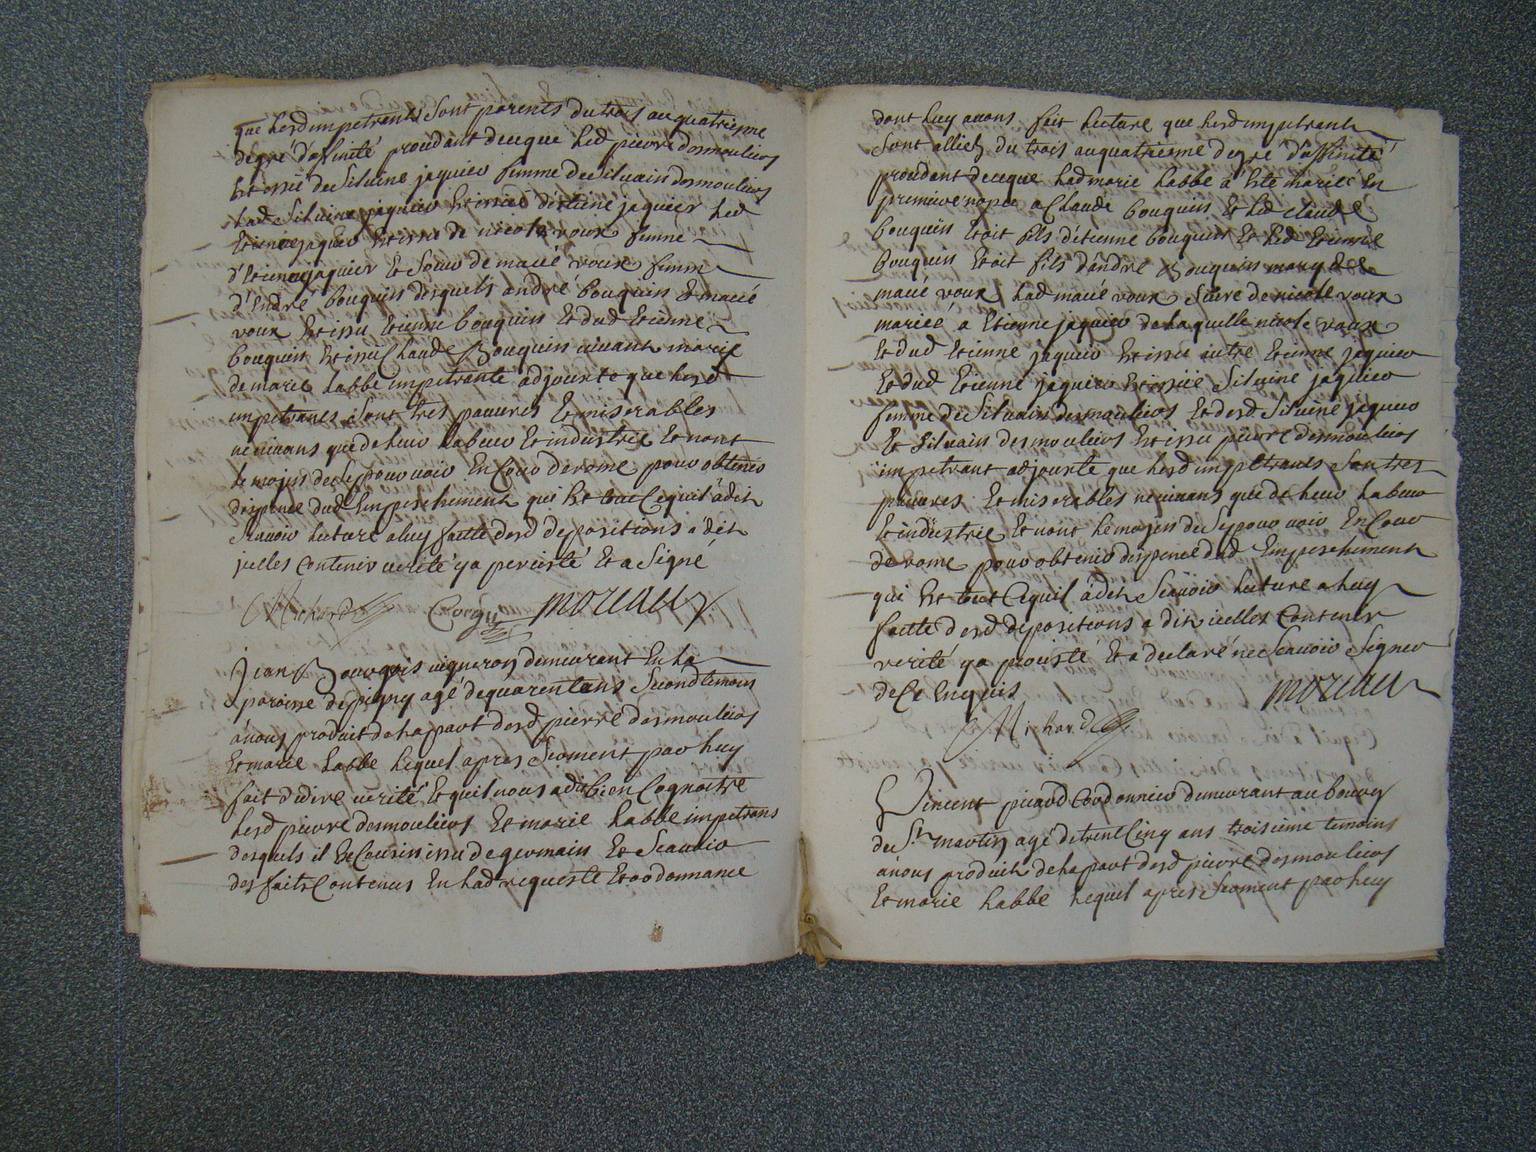 que lesd impetrants sont parents du trois au quatriesme
degré d'afinité proceddant de ce que led pierre desmoulins
est issü de Silvine jaquier femme de Silvain desmoulins
lad Silvine jaquier est issüe d'etiene jaquier led
Etiene jaquier est issu de nicole roux femme
d'Etiene jaquier et soeur de macié roux femme
d'André bouquin desquels andré bouquin et macié
roux est issu etienne bouquin et dud Etienne
bouquin est issu Claude Bouquin vivant marié
de marie labbe impetrante adjoute que lesd
impetrants sont tres pauvres et miserables
ne vivans que de leur labeur et industrie et n'ont
le moyen de se pourvoir en Cour de rome pour obtenir
dispence dud Empeschement qui est tout ce quil a dit
sçavoir lecture a luy faitte desd depositions a dit
icelles contenir verité y a percisté et a signé
Michard moreau
jean Bourgois vigneron demeurant en la
paroisse de pigny agé de quarente ans second temoin
à nous produit de la part desd pierre desmoulins
et marie labbe lequel apres serment par luy
fait de dire verité et quil nous a dit bien Cognoitre
lesd pierre desmoulins et marie labbe impetrans
desquels il est cousin issu de germain et sçavoir
des faits contenus en lad requeste et ordonnance
dont luy avons fait lecture que lesd impetrants
sont alliez du trois au quatriesme degré d'affinité
proceddant de ce que lad marie labbe a esté mariée en
premiere nopce a Claude bouquin et led claude
bouquin etoit fils d'etienne bouquin et led Etienne
Bouquin etoit fils d'andré Bouquin mary de
macié roux lad macié roux soeur de nicole roux
mariée a Etienne jaquier de laquelle nicole roux
et dud Etienne jaquier est issu autre Etienne jaquier
et dud Etienne jaquier est issüe Silvine jaquier
femme de Silvain desmoulins et desd Silvine jaquier
et Silvain desmoulins est issu pierre desmoulins
impetrant adjoute que lesd impetrants sont tres
pauvres et miserables ne vivans que de leur labeur
et industrie et n'ont le moyen de se pourvoir en Cour
de rome pour obtenir dispence dud Empeschement
qui est tout ce quil a dit sçavoir lecture a luy
faitte desd depositions a dit icelles contenir
verité y a procisté et a declaré ne sçavoir signer
de ce Enquis moreau
Michard
Vincent picard Cordonnier demeurant au bourg
de St martin agé de trent cinq ans troisieme temoins
à nous produit de la part desd pierre desmoulins
et marie labbe lequel apres serment par luy